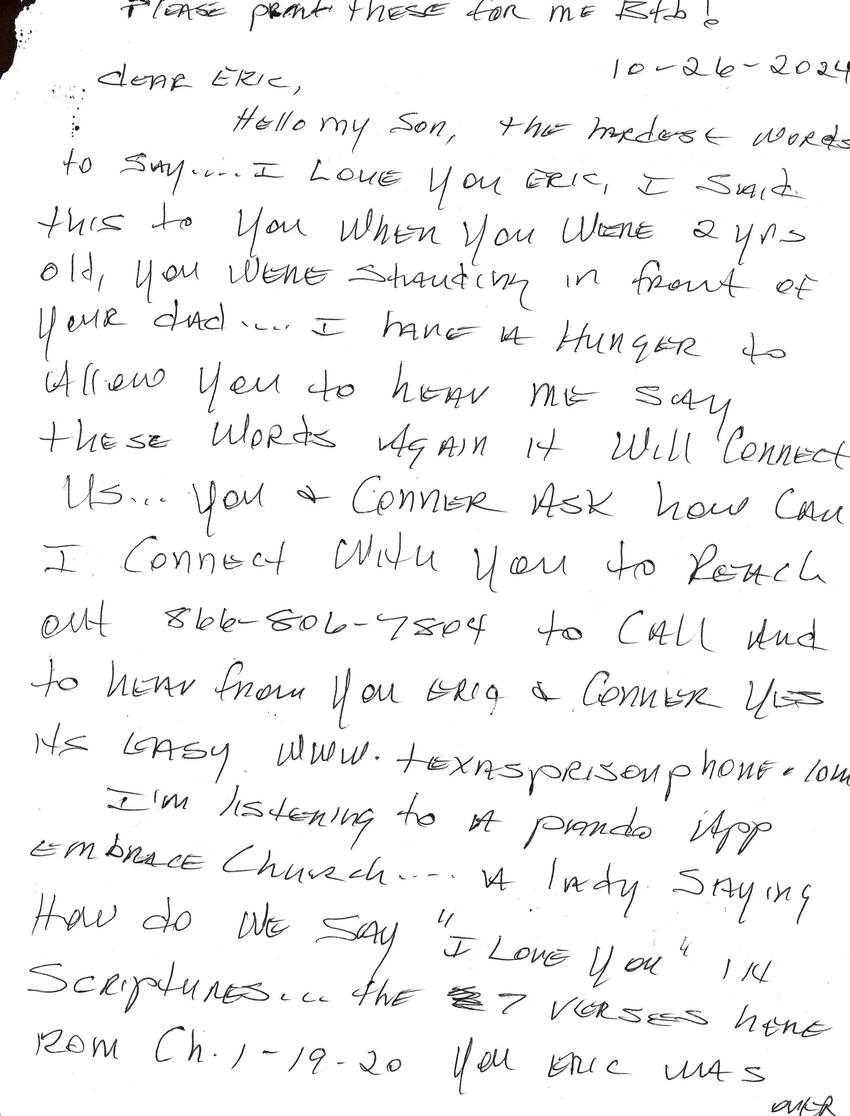 PLEASE print these for me Btb!
10-26-2024
Dear ERIC,
Hello my Son, the hardest words
to SAY..... I LOVE You ERIC, I Said
this to You WHEN You WERE 2 yrs
old, you WERE standing in front of
YOUR dAd.... I have A HUNGER to
Allow You to hear ME SAY
these WORds AgAIN it Will Connect
Us... You & CONNER ASK how CAN
I Connect With You to Reach
out 866-806-7804 to CAll And
to hear from You ERIC & CONNER YES
its EASY WWW.texasprisonphone.com
I'm listening to A App
EMBRACE Church.... A lady SAYING
How do WE SAY "I LOVE You" in
Scriptures... the 7 VERSES here
Rom Ch. 1-19-20 You ERIC WAS
OVER